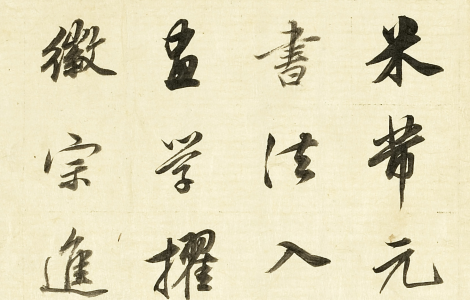 米芾元
書法入
畫學擢
徽宗進